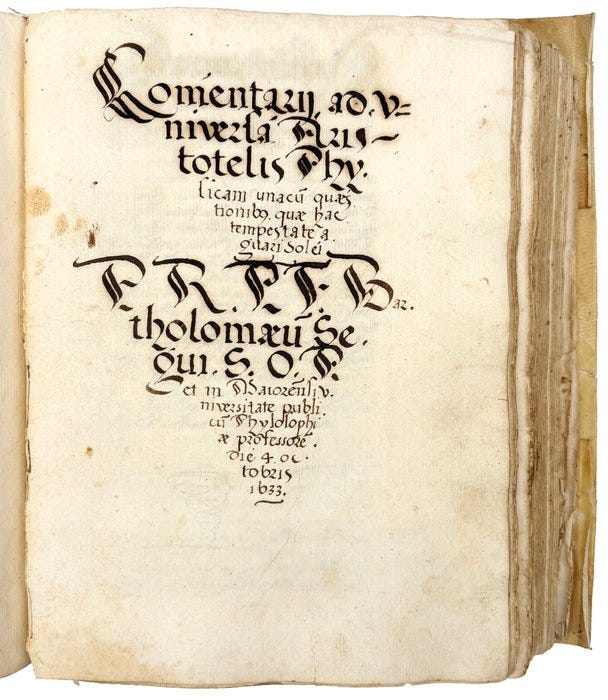 Comentarij ad v=
niversā Aris-
totelis Phy.
sicam unacū quæs
tionibꝰ. quæ hac
tempestate a
gitari solēt
P. R. P. F. Bar.
tholomæū Se.
gui. S. O. P.
et in Maiorēnsi v.
niversitate publi.
cū Phylosophi
æ professorē.
die 4. oc.
tobris
1633.